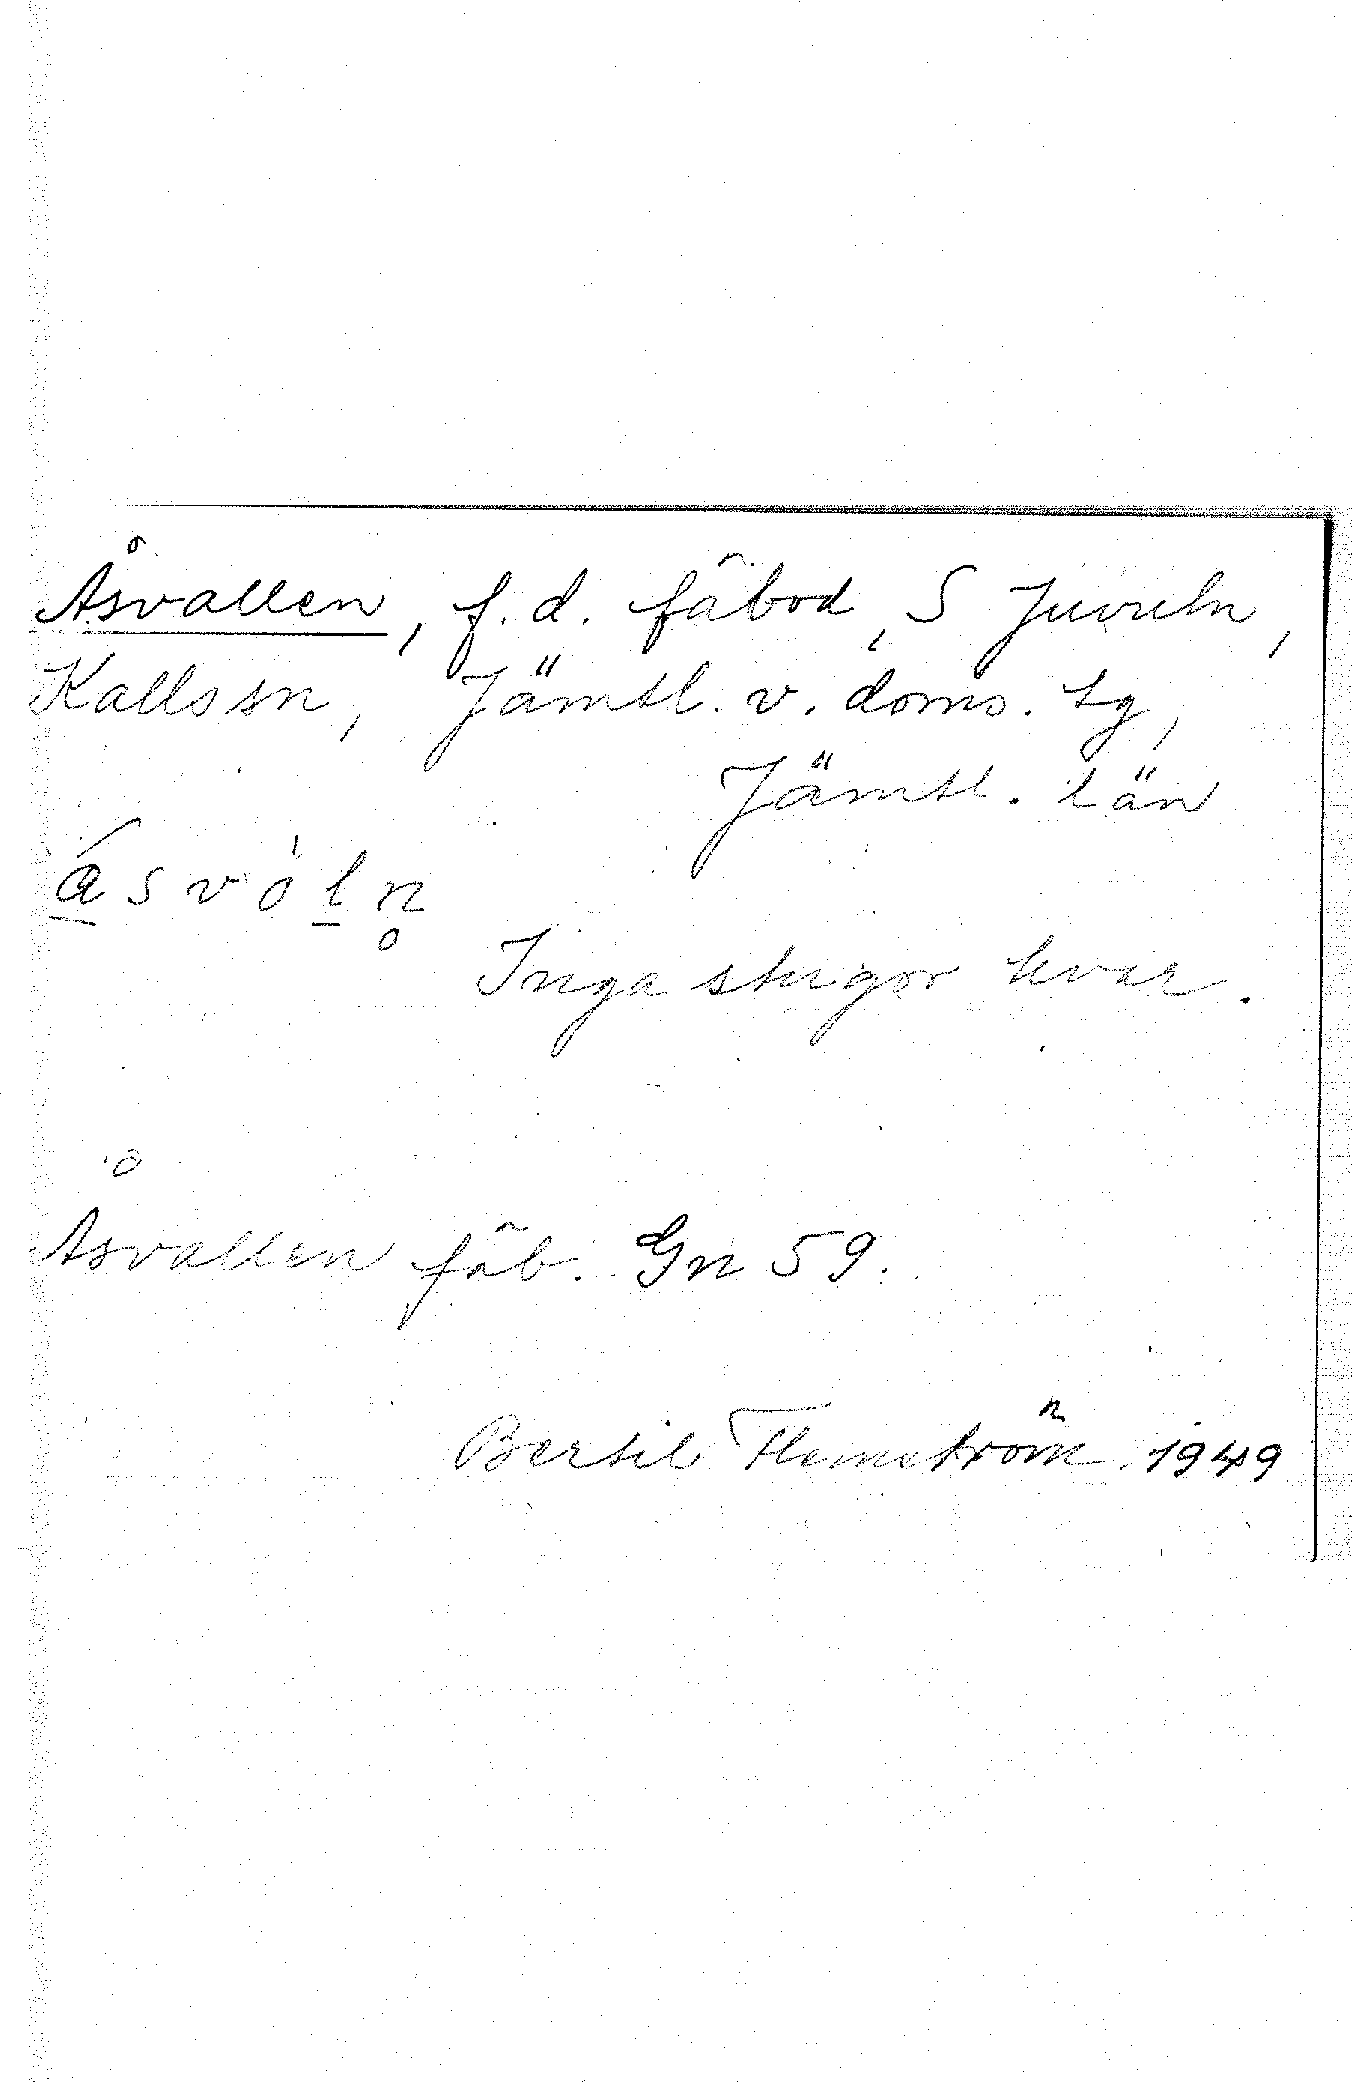 Åsvallen, f. d. fäbod, S Juveln,
Kallssn, Jämtl. v. doms. lg,
Jämtl. län
ásvòln̥
Inga stugor kvar.
Åsvallen fäb. Gn 59.
Bertil Flemström 1949